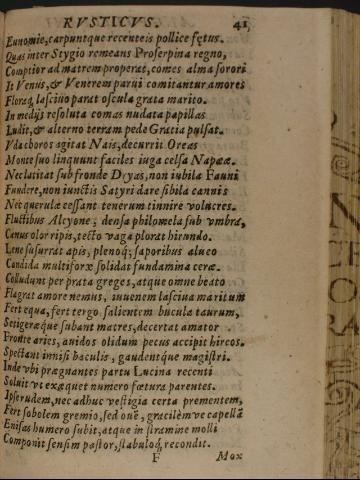 RVSTICVS. 41
Eunomie, carpuntque recenteis pollice fętus.
Quas inter Stygio remeans Proserpina regno,
Comptior ad matrem properat, comes alma sorori
It Venus, & Venerem parui comitantur amores
Floraq; lasciuo parat oscula grata marito.
In medijs resoluta comas nudata papillas
Ludit, & alterno terram pede Gratia pulsat.
Vda choros agitat Nais, decurrit Oreas
Monte suo linquunt faciles iuga celsa Napææ.
Nec latitat sub fronde Dryas, non iubila Fauni
Fundere, non iunctis Satyri dare sibila cannis
Nec querulæ cessant tenerum tinnire volucres.
Fluctibus Alcyone, densa philomela sub vmbra,
Canus olor ripis, tecto vaga plorat hirundo.
Lene susurrat apis, plenoq; saporibus alueo
Candida multiforæ solidat fundamina ceræ.
Colludunt per prata greges, atque omne beato
Flagrat amore nemus, iuuenem lasciua maritum
Fert equa, fert tergo salientem bucula taurum,
Setigeræque subant matres, decertat amator
Fronte aries, auidos olidum pecus accipit hircos.
Spectant innisi baculis, gaudentque magistri.
Inde vbi prægnantes partu Lucina recenti
Soluit vt exæquet numero fœtura parentes.
Ipse rudem, nec adhuc vestigia certa prementem,
Fert sobolem gremio, sed ouē, gracilēmve capellā
Enisas humero subit, atque in stramine molli
Componit sensim pastor, stabuloq; recondit.
F Mox